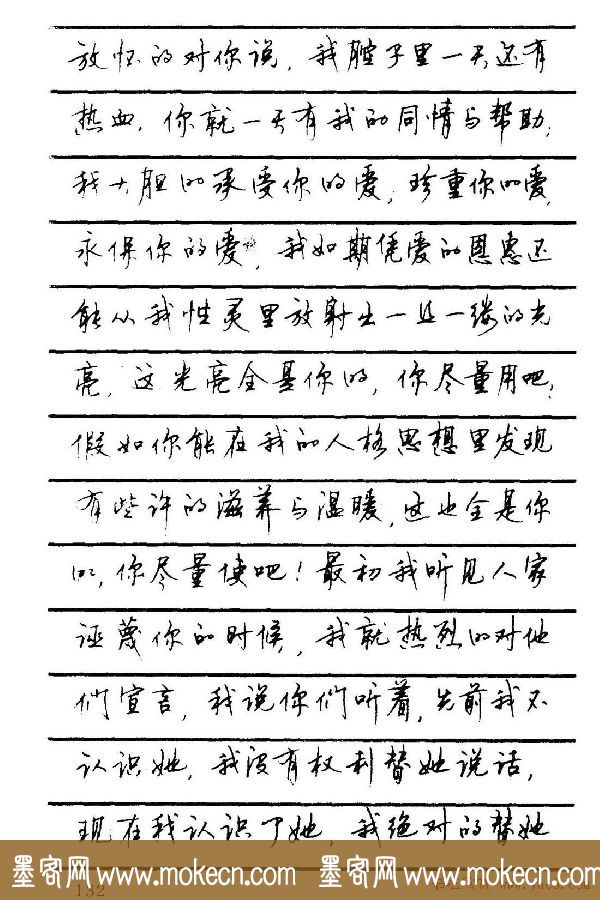 放怀的对你说，我腔子里一天还有
热血，你就一天有我的同情与帮助；
我大胆的承受你的爱，珍重你的爱，
永保你的爱，我如期凭爱的恩惠还
能从我性灵里放射出一丝一缕的光
亮，这光亮全是你的，你尽量用吧；
假如你能在我的人格思想里发现
有些许的滋养与温暖，这也全是你
的，你尽量使吧！最初我听见人家
诬蔑你的时候，我就热烈的对他
们宣言，我说你们听着，先前我不
认识她，我没有权利替她说话，
现在我认识了她，我绝对的替她
墨客网 www.mokecn.com 墨客网 www.mokecn.com
132